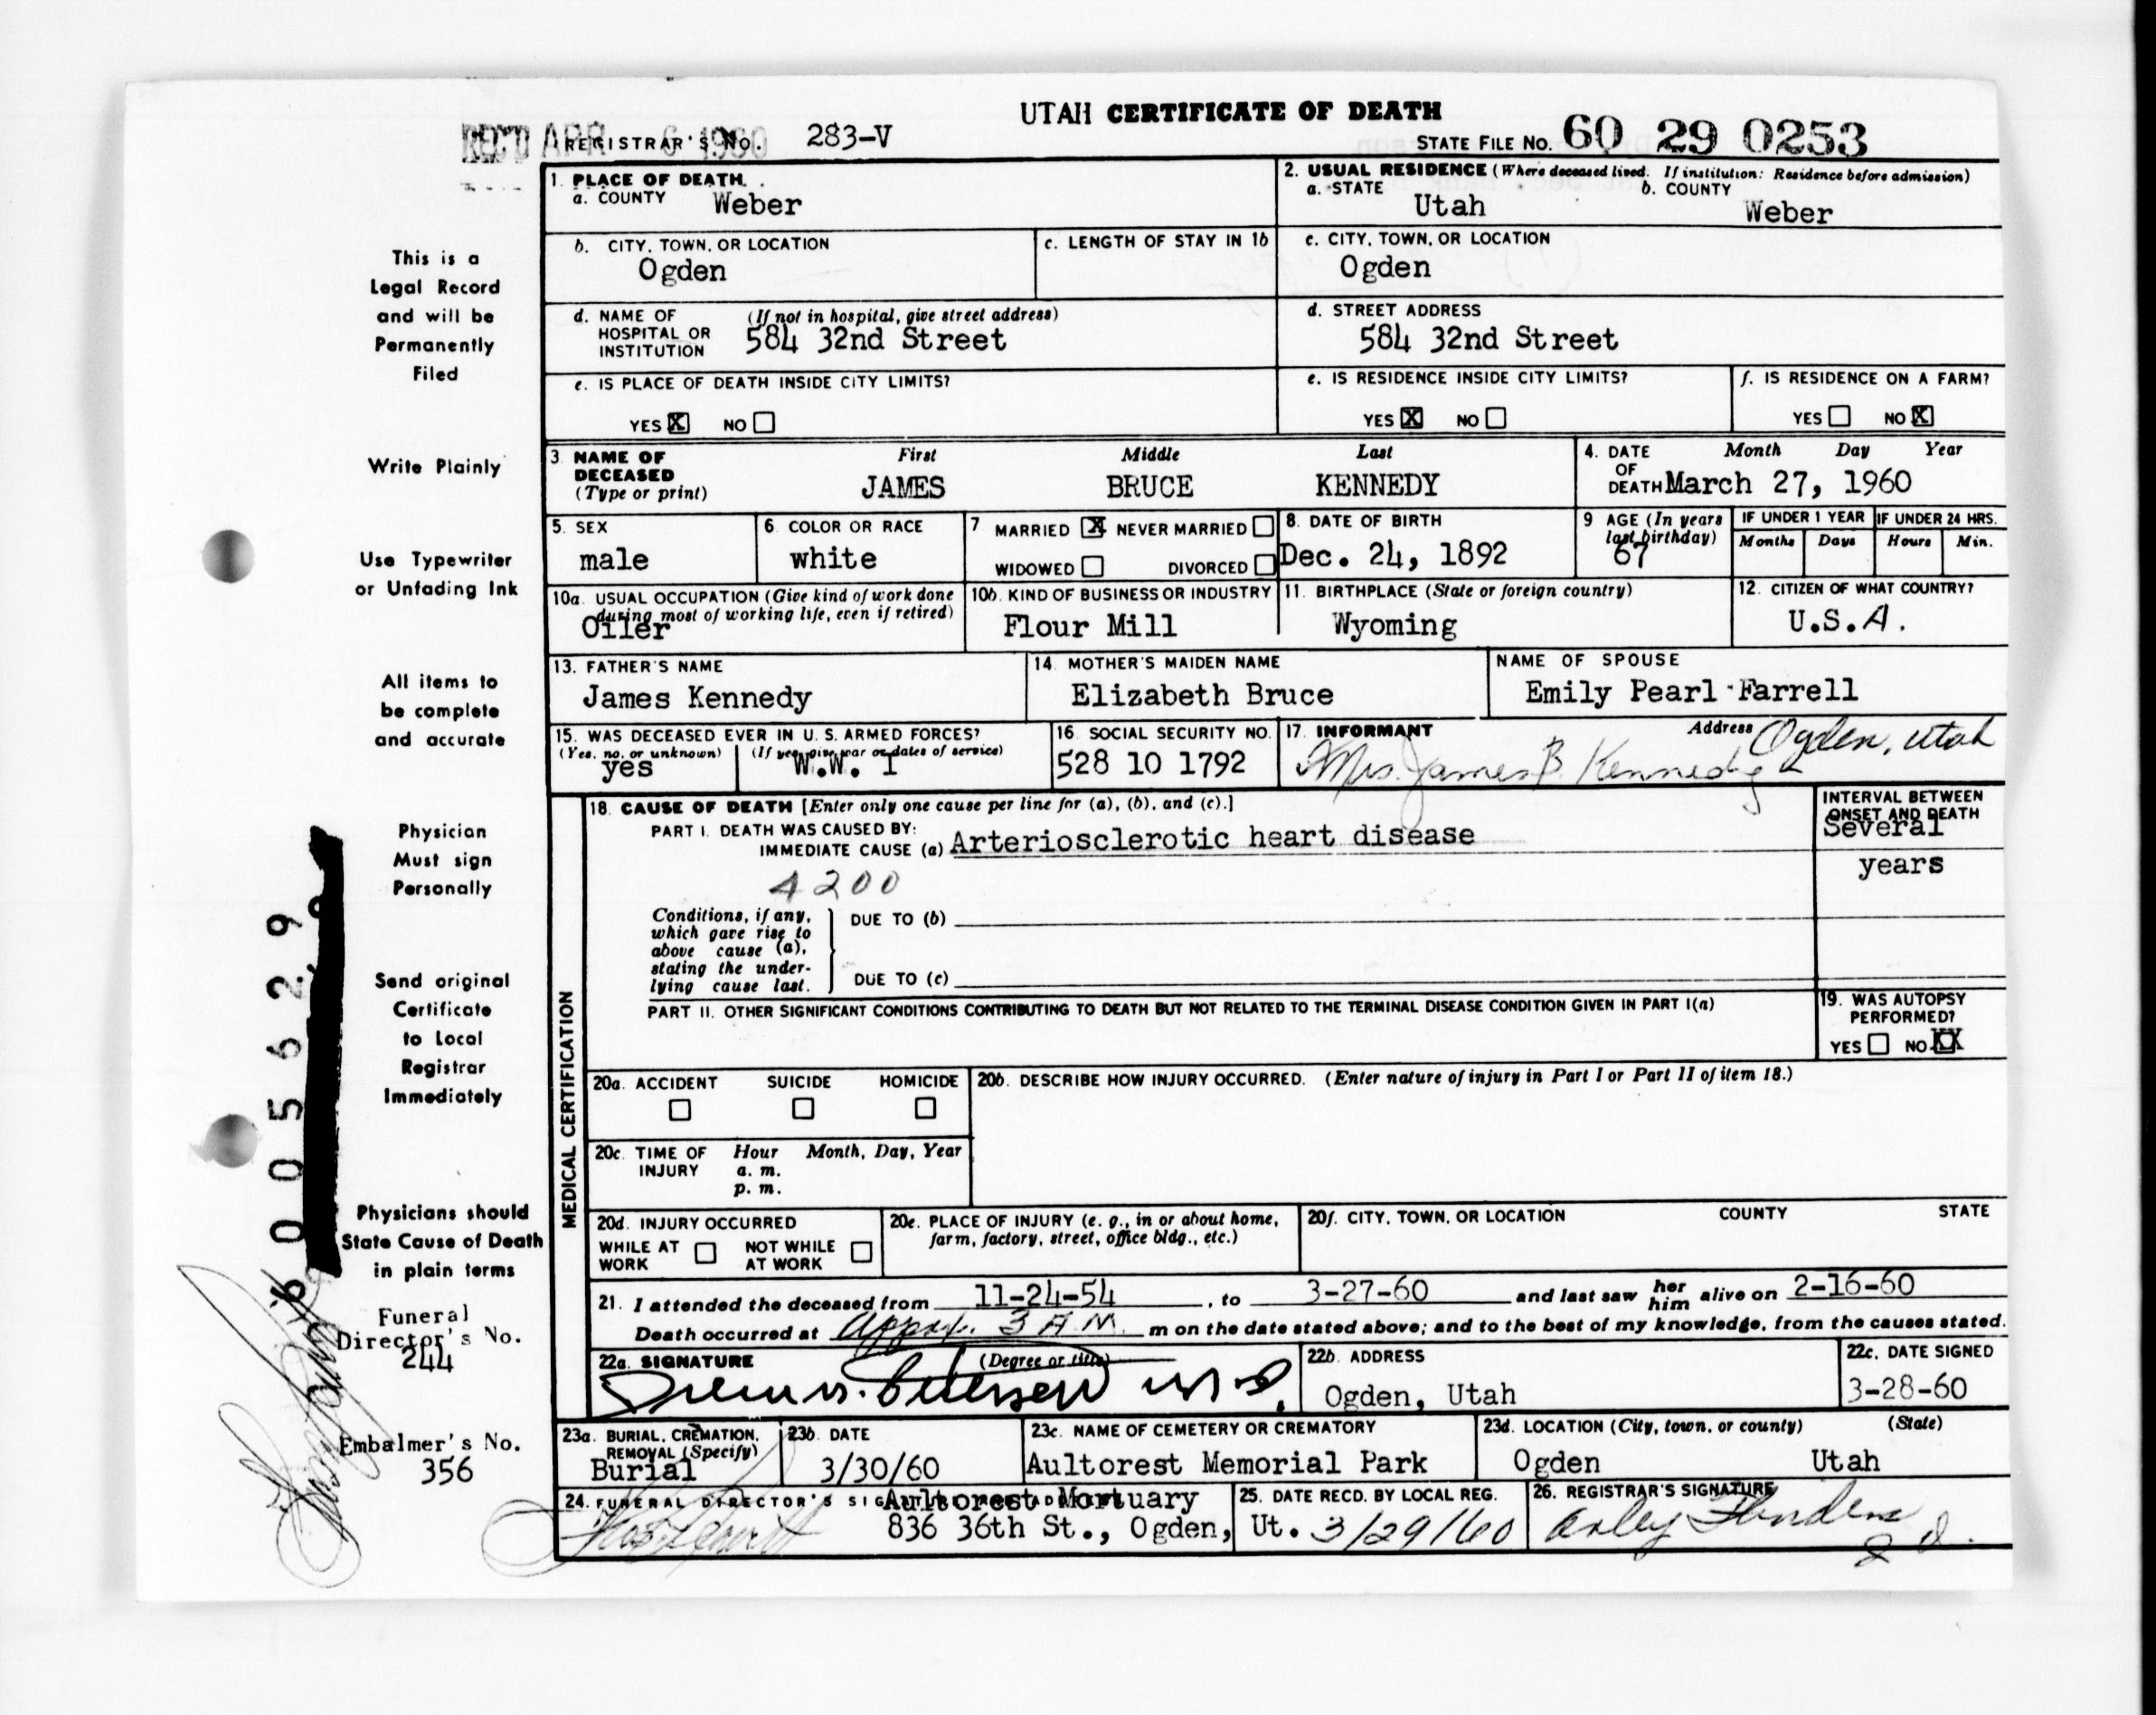 UTAH CERTIFICATE OF DEATH
REC'D APR 6 1960 REGISTRAR'S No. 283-V STATE FILE No. 60 29 0253
1. PLACE OF DEATH
a. COUNTY Weber
2. USUAL RESIDENCE (Where deceased lived. If institution: Residence before admission)
a. STATE Utah b. COUNTY Weber
b. CITY, TOWN, OR LOCATION Ogden
c. LENGTH OF STAY IN 1b
c. CITY, TOWN, OR LOCATION Ogden
d. NAME OF HOSPITAL OR INSTITUTION (If not in hospital, give street address) 584 32nd Street
d. STREET ADDRESS 584 32nd Street
e. IS PLACE OF DEATH INSIDE CITY LIMITS?
YES X NO
e. IS RESIDENCE INSIDE CITY LIMITS?
YES X NO
f. IS RESIDENCE ON A FARM?
YES NO X
3. NAME OF DECEASED (Type or print)
First Middle Last
JAMES BRUCE KENNEDY
4. DATE OF DEATH Month Day Year
March 27, 1960
5. SEX male
6. COLOR OR RACE white
7 MARRIED X NEVER MARRIED
WIDOWED DIVORCED
8. DATE OF BIRTH Dec. 24, 1892
9 AGE (In years last birthday) 67
IF UNDER 1 YEAR IF UNDER 24 HRS.
Months Days Hours Min.
10a. USUAL OCCUPATION (Give kind of work done during most of working life, even if retired) Oiler
10b. KIND OF BUSINESS OR INDUSTRY Flour Mill
11. BIRTHPLACE (State or foreign country) Wyoming
12. CITIZEN OF WHAT COUNTRY? U.S.A.
13. FATHER'S NAME James Kennedy
14. MOTHER'S MAIDEN NAME Elizabeth Bruce
NAME OF SPOUSE Emily Pearl Farrell
15. WAS DECEASED EVER IN U. S. ARMED FORCES?
(Yes, no, or unknown) yes (If yes, give war or dates of service) W.W. I
16. SOCIAL SECURITY NO. 528 10 1792
17. INFORMANT Mrs. James B. Kennedy Address Ogden, Utah
MEDICAL CERTIFICATION
18. CAUSE OF DEATH [Enter only one cause per line for (a), (b), and (c).]
PART I. DEATH WAS CAUSED BY:
IMMEDIATE CAUSE (a) Arteriosclerotic heart disease
INTERVAL BETWEEN ONSET AND DEATH
Several years
4200
Conditions, if any, which gave rise to above cause (a), stating the underlying cause last.
DUE TO (b)
DUE TO (c)
PART II. OTHER SIGNIFICANT CONDITIONS CONTRIBUTING TO DEATH BUT NOT RELATED TO THE TERMINAL DISEASE CONDITION GIVEN IN PART I(a)
19. WAS AUTOPSY PERFORMED?
YES NO XX
20a. ACCIDENT SUICIDE HOMICIDE
20b. DESCRIBE HOW INJURY OCCURRED. (Enter nature of injury in Part I or Part II of item 18.)
20c. TIME OF INJURY Hour Month, Day, Year
a. m.
p. m.
20d. INJURY OCCURRED
WHILE AT WORK NOT WHILE AT WORK
20e. PLACE OF INJURY (e. g., in or about home, farm, factory, street, office bldg., etc.)
20f. CITY, TOWN, OR LOCATION COUNTY STATE
21. I attended the deceased from 11-24-54, to 3-27-60 and last saw her him alive on 2-16-60
Death occurred at approx. 3 A.M. m on the date stated above; and to the best of my knowledge, from the causes stated.
22a. SIGNATURE (Degree or title) M.D.
22b. ADDRESS Ogden, Utah
22c. DATE SIGNED 3-28-60
23a. BURIAL, CREMATION, REMOVAL (Specify) Burial
23b. DATE 3/30/60
23c. NAME OF CEMETERY OR CREMATORY Aultorest Memorial Park
23d. LOCATION (City, town, or county) (State)
Ogden Utah
24. FUNERAL DIRECTOR'S SIGNATURE ADDRESS
Aultorest Mortuary
836 36th St., Ogden, Ut.
25. DATE RECD. BY LOCAL REG. 3/29/60
26. REGISTRAR'S SIGNATURE
This is a
Legal Record
and will be
Permanently
Filed
Write Plainly
Use Typewriter
or Unfading Ink
All items to
be complete
and accurate
Physician
Must sign
Personally
Send original
Certificate
to Local
Registrar
Immediately
Physicians should
State Cause of Death
in plain terms
Funeral
Director's No.
244
Embalmer's No.
356
005629